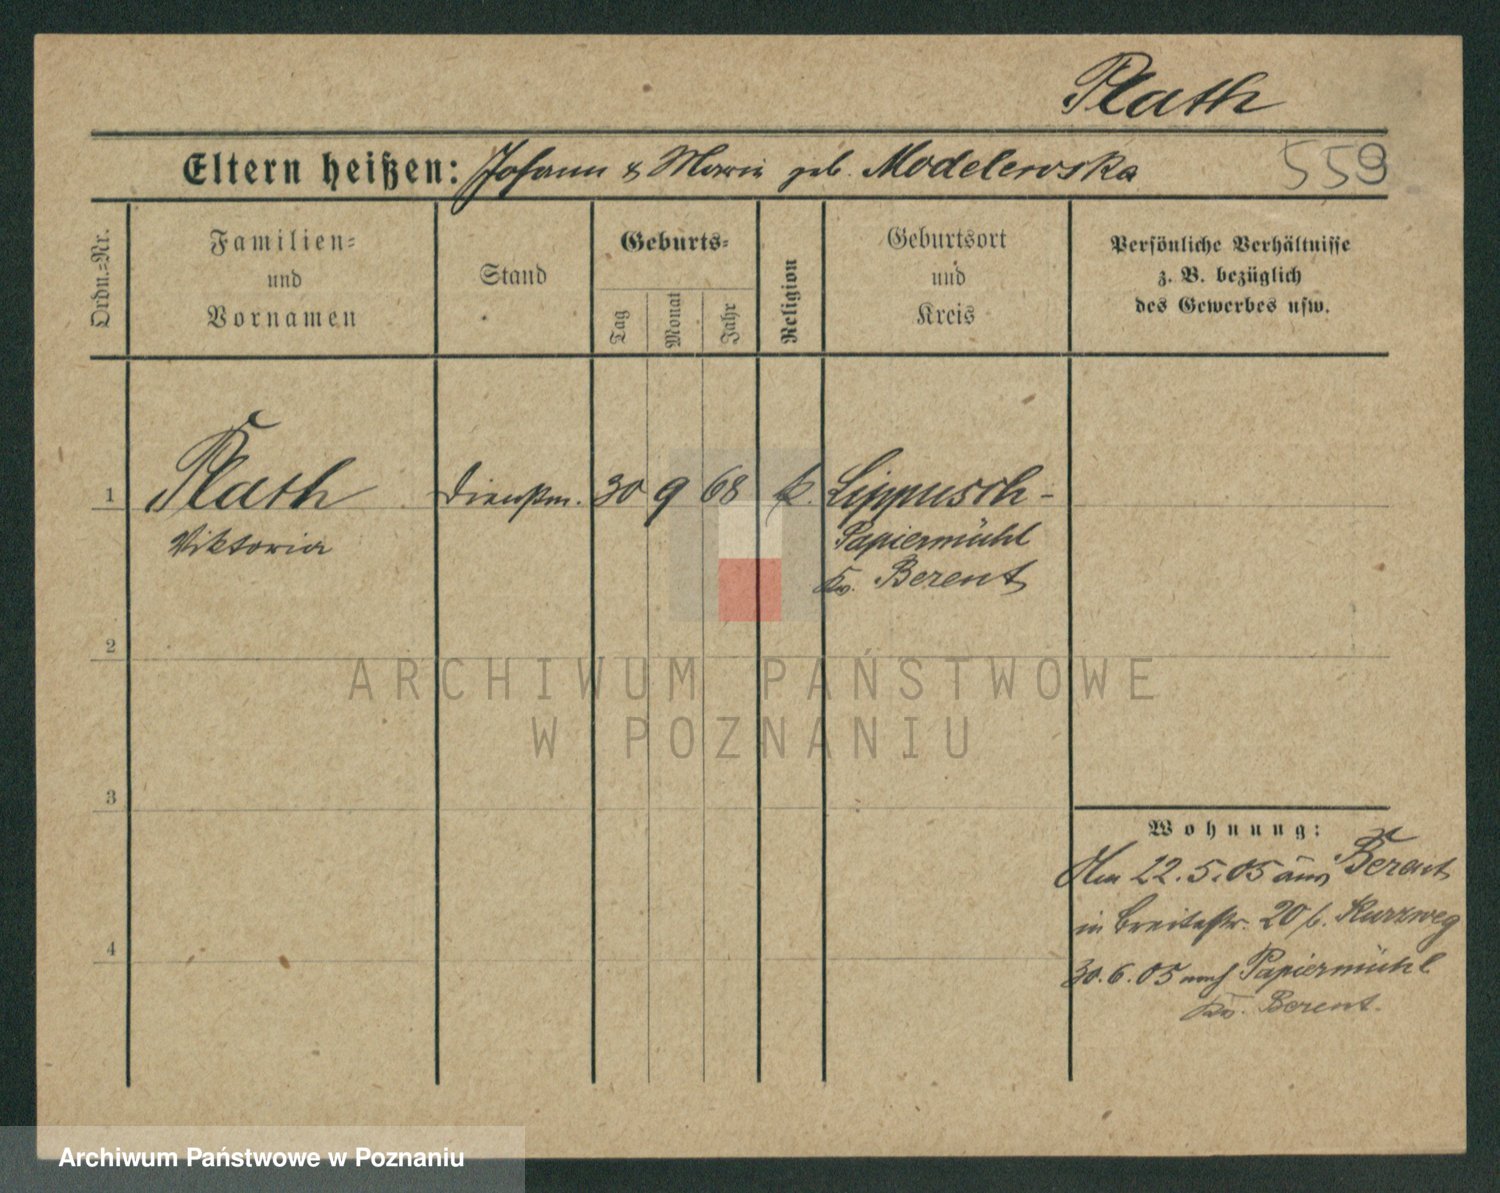 Plath
Eltern heißen: Johann & Marie geb. Modelewska
559
Ordn.=Nr.
Familien=
und
Vornamen
Stand
Geburts=
Tag
Monat
Jahr
Religion
Geburtsort
und
Kreis
Persönliche Verhältnisse
z. B. bezüglich
des Gewerbes usw.
1 Plath Dienstm. 30 9 68 k. Lippusch-
Viktoria Papiermühl
Kr. Berent
2
3
4
Wohnung:
Am 22.5.05 aus Berent
in Breitestr. 20 b. Kurzweg
30.6.05 nach Papiermühl
Kr. Berent.
ARCHIWUM PAŃSTWOWE
W POZNANIU
Archiwum Państwowe w Poznaniu